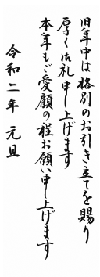 旧年中は格別のお引き立てを賜り
厚く御礼申し上げます
本年もご愛顧の程お願い申し上げます
令和二年 元旦